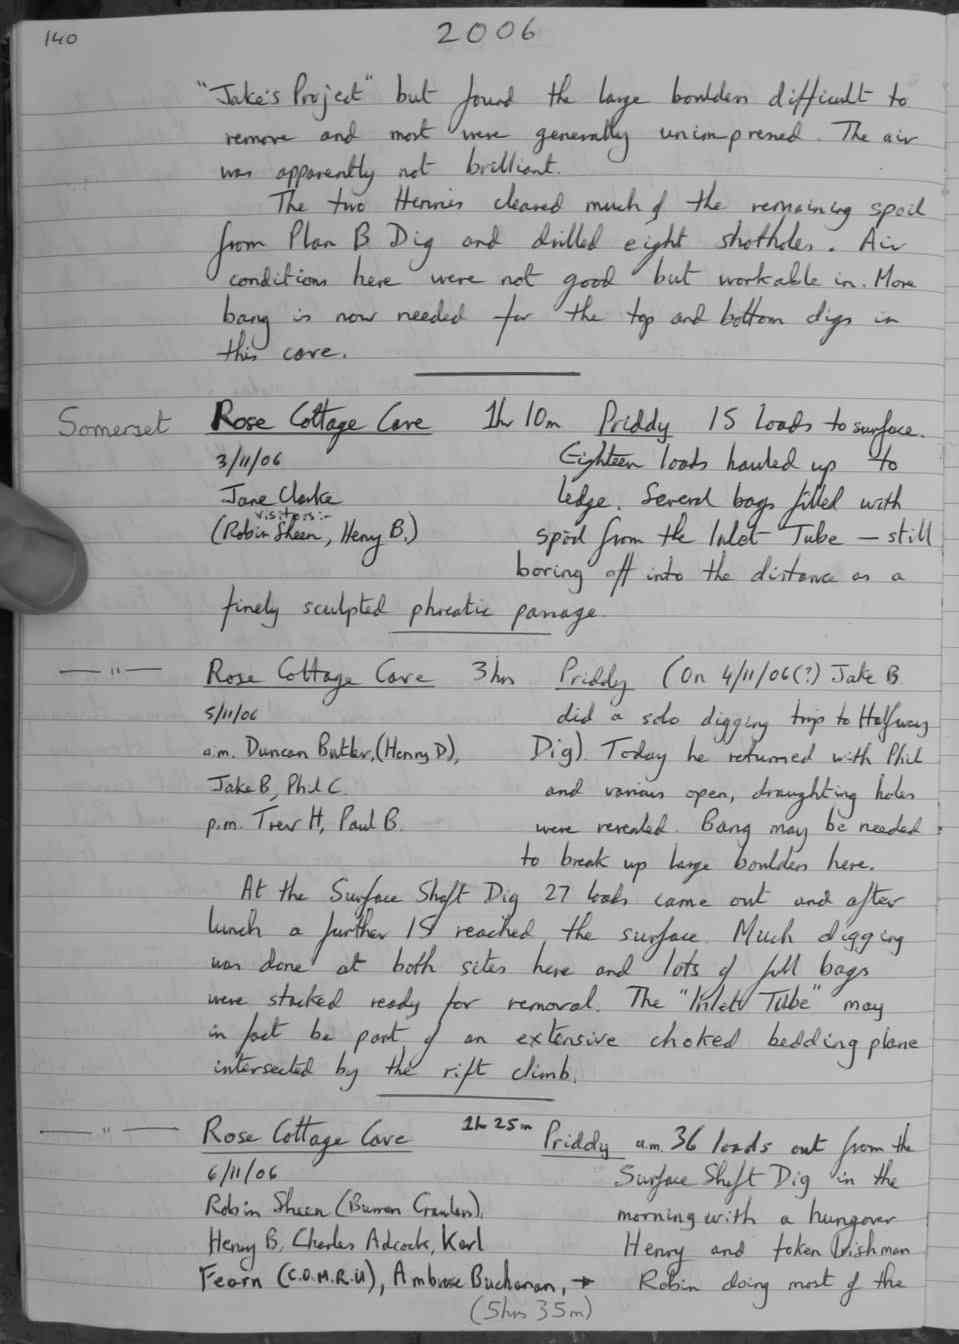 140
2006
"Jake's Project" but found the large boulders difficult to
remove and most were generally unimpressed. The air
was apparently not brilliant.
The two Henries cleared much of the remaining spoil
from Plan B Dig and drilled eight shotholes. Air
conditions here were not good but workable in. More
bang is now needed for the top and bottom digs in
this cave.
Somerset Rose Cottage Cave 1h 10m Priddy 15 loads to surface.
3/11/06 Eighteen loads hauled up to
Jane Clarke ledge. Several bags filled with
visitors:-
(Robin Sheen, Henry B.) spoil from the Inlet Tube - still
boring off into the distance as a
finely sculpted phreatic passage.
—"— Rose Cottage Cave 3hrs Priddy (On 4/11/06(?) Jake B
5/11/06 did a solo digging trip to Halfway
a.m. Duncan Butler, (Henry D), Dig). Today he returned with Phil
Jake B, Phil C. and various open, draughting holes
p.m. Trev H, Paul B. were revealed. Bang may be needed
to break up large boulders here.
At the Surface Shaft Dig 27 loads came out and after
lunch a further 15 reached the surface. Much digging
was done at both sites here and lots of full bags
were stacked ready for removal. The "Inlet Tube" may
in fact be part of an extensive choked bedding plane
intersected by the rift climb.
—"— Rose Cottage Cave 1h 25m Priddy a.m. 36 loads out from the
6/11/06 Surface Shaft Dig in the
Robin Sheen (Burren Crawlers), morning with a hungover
Henry B, Charles Adcock, Karl Henry and token Irishman
Fearn (C.O.M.R.U), Ambrose Buchanan, → Robin doing most of the
(5hrs 35m)